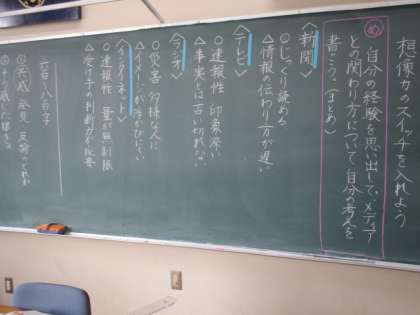 想像力のスイッチを入れよう
め 自分の経験を思い出して、メディア
との関わり方について自分の考えを
書こう。(まとめ)
〈新聞〉
○じっくり読める
△情報の伝わり方が遅い
〈テレビ〉
○速報性 印象深い
△事実とは言い切れない
〈ラジオ〉
○災害 多くの人に
△イメージが浮かびにくい
〈インターネット〉
○速報性 量が無制限
△受け手の判断力が必要
六百~八百字
①共感 発見 反論のどれか